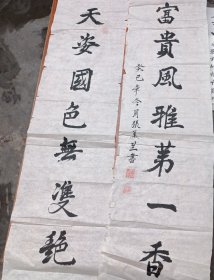 富貴風雅第一香
天姿國色無雙艷
癸巳年冬月張書